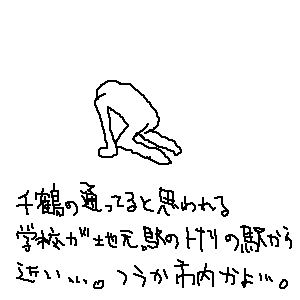 千鶴の通ってると思われる
学校が地元駅のトナリの駅から
近い…。つうか市内かよ…。